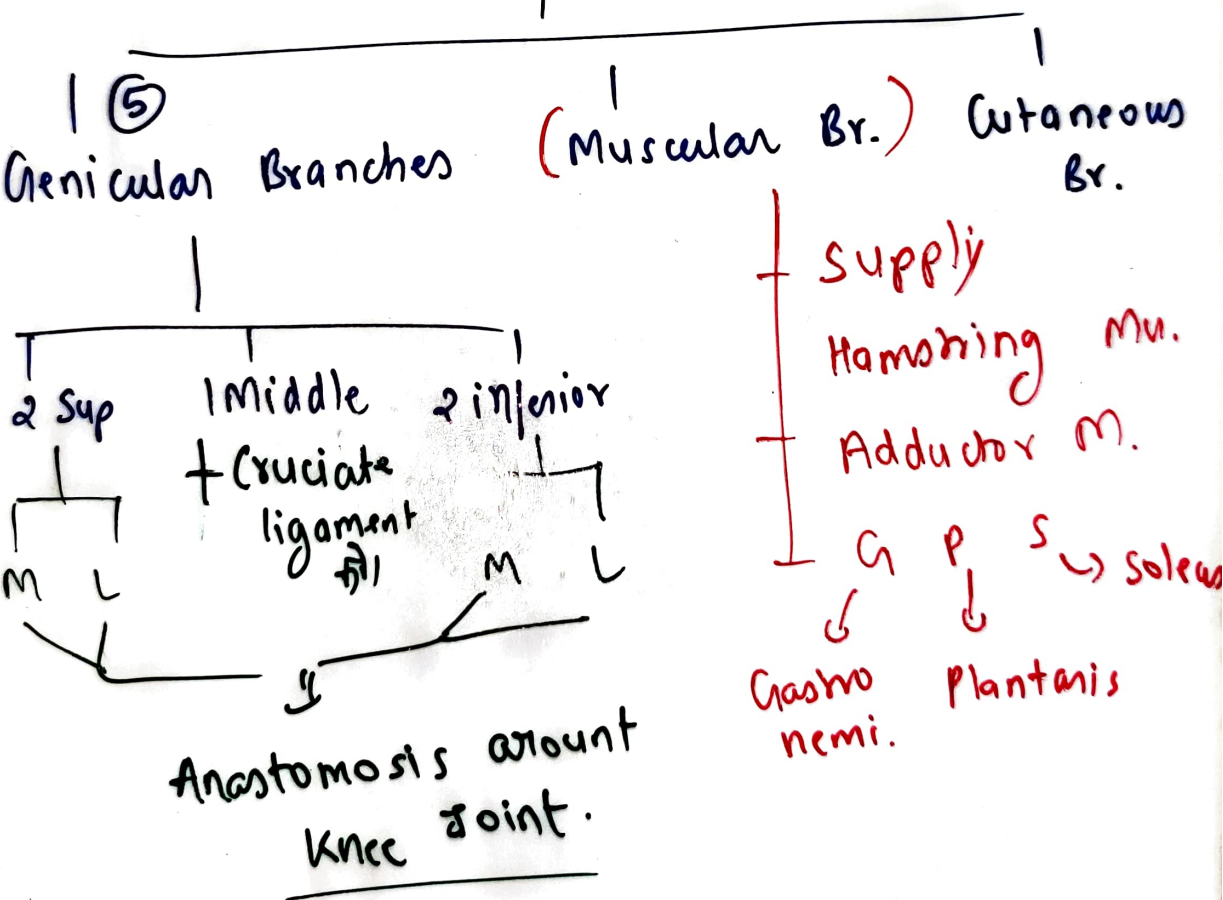 ⑤
Genicular Branches
(Muscular Br.)
Cutaneous
Br.
2 Sup
1 Middle
2 inferior
Cruciate
ligament
M L
M L
Anastomosis arount
Knee Joint.
Supply
Hamstring Mu.
Adductor M.
G P S → Soleus
Gastro
nemi.
Plantaris